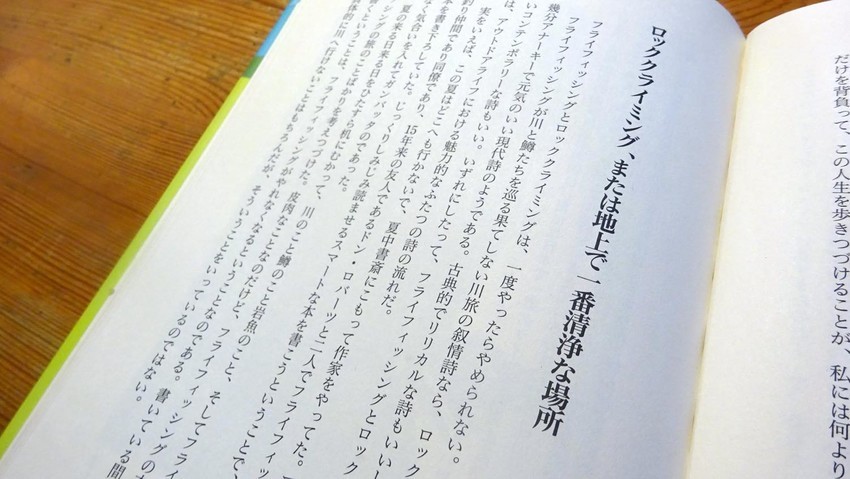 だけを背負って、この人生を歩きつづけることが、私には何より
ロッククライミング、または地上で一番清浄な場所
フライフィッシングとロッククライミングは、一度やったらやめられない。
フライフィッシングが川と鱒たちを巡る果てしない川旅の叙情詩なら、ロック
幾分アナーキーで元気のいい現代詩のようである。古典的でリリカルな詩もいいし
いコンテンポラリーな詩もいい。いずれにしたって、フライフィッシングとロック
は、アウトドアライフにおける魅力的なふたつの詩の流れだ。
実をいえば、この夏はどこへも行かないで、夏中書斎にこもって作家をやってた。
釣り仲間であり同僚であり、15年来の友人であるドン・ロバーツと二人でフライフィッ
本を書き下ろしていた。じっくりしみじみ読ませるスマートな本を書こうということで、
なく気合いを入れてガンバッたのであった。
夏の来る日来る日をひたすら机にむかって、川のこと鱒のこと岩魚のこと、そしてフライ
ッシングの旅のことばかりを考えつづけた。皮肉なことなのだけど、フライフィッシングの本
くということは、フライフィッシングがやれなくなるということなのである。書いている間
体的に川へ行けないことはもちろんだが、そういうことをいっているのではない。